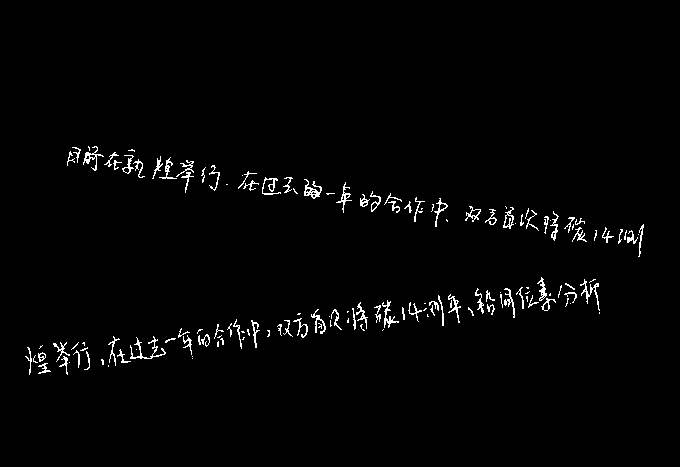 日前在敦煌举行.在过去的一年的合作中、双方首次将碳14测
煌举行,在过去一年的合作中,双方首次将碳14测年、铅同位素分析